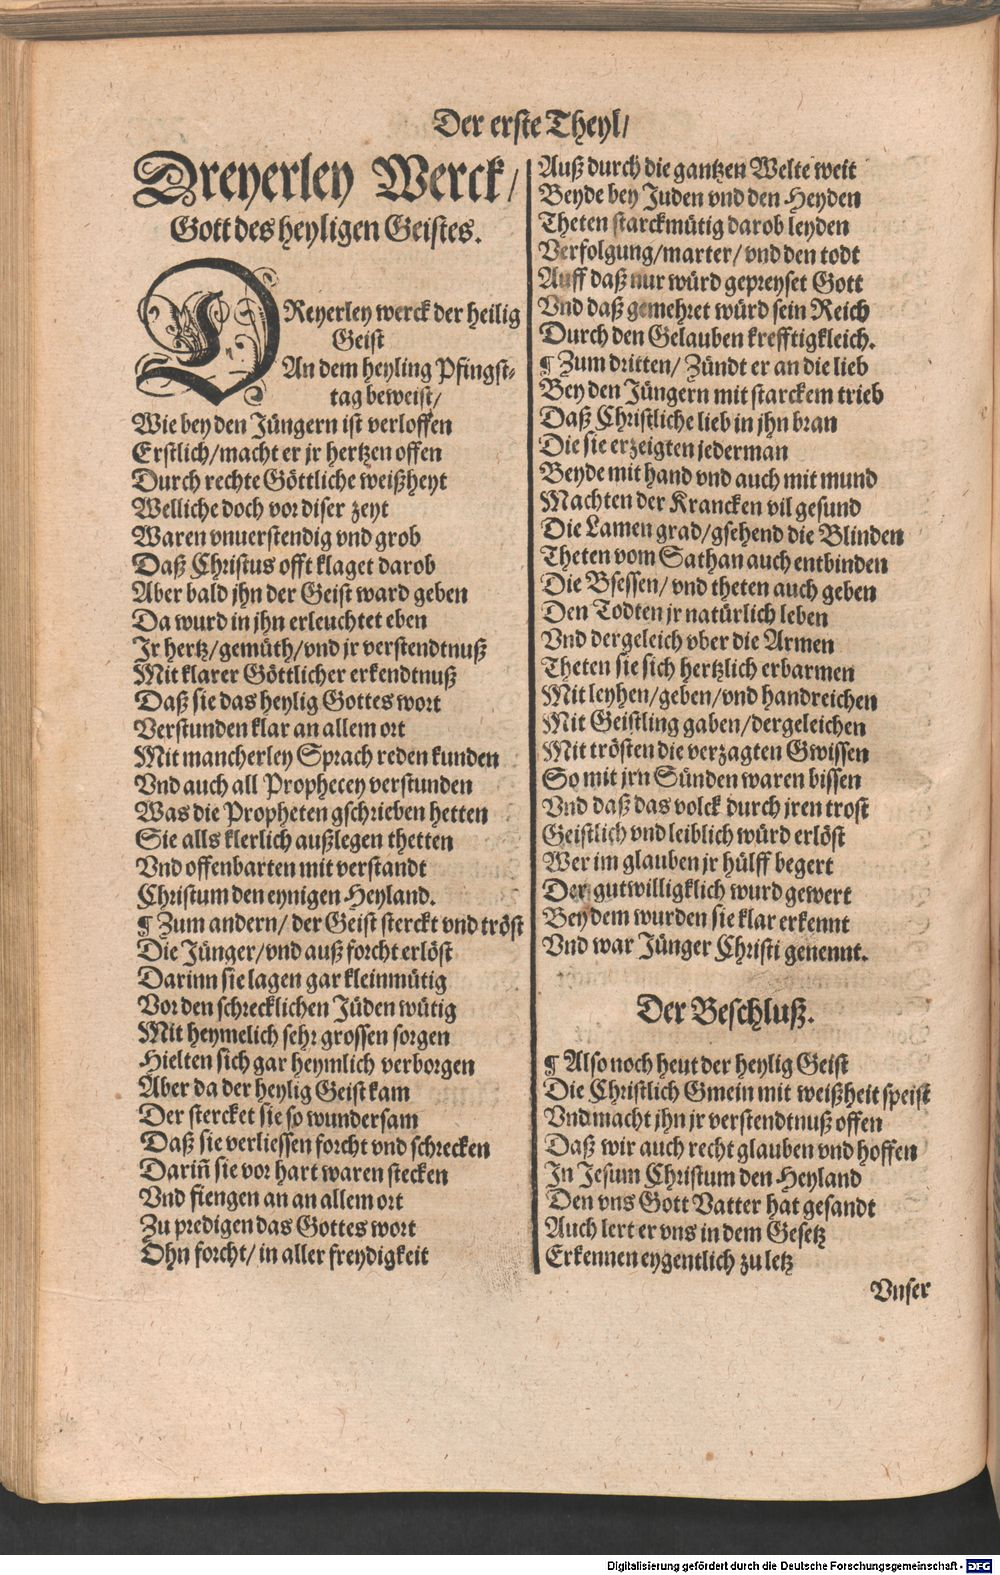 Der erste Theyl/
Dreyerley Werck/
Gott des heyligen Geistes.
DReyerley werck der heilig
Geist
An dem heyling Pfingst-
tag beweist/
Wie bey den Jüngern ist verloffen
Erstlich/macht er jr hertzen offen
Durch rechte Göttliche weißheyt
Welliche doch vor diser zeyt
Waren vnuerstendig vnd grob
Daß Christus offt klaget darob
Aber bald jhn der Geist ward geben
Da wurd in jhn erleuchtet eben
Jr hertz/gemüth/vnd jr verstendtnuß
Mit klarer Göttlicher erkendtnuß
Daß sie das heylig Gottes wort
Verstunden klar an allem ort
Mit mancherley Sprach reden kunden
Vnd auch all Prophecey verstunden
Was die Propheten gschrieben hetten
Sie alls klerlich außlegen thetten
Vnd offenbarten mit verstandt
Christum den eynigen Heyland.
¶ Zum andern/ der Geist sterckt vnd tröst
Die Jünger/vnd auß forcht erlöst
Darinn sie lagen gar kleinmütig
Vor den schrecklichen Jüden wütig
Mit heymelich sehr grossen sorgen
Hielten sich gar heymlich verborgen
Aber da der heylig Geist kam
Der stercket sie so wundersam
Daß sie verliessen forcht vnd schrecken
Dariñ sie vor hart waren stecken
Vnd fiengen an an allem ort
Zu predigen das Gottes wort
Ohn forcht/ in aller freydigkeit
Auß durch die gantzen Welte weit
Beyde bey Juden vnd den Heyden
Theten starckmütig darob leyden
Verfolgung/marter/ vnd den todt
Auff daß nur würd gepreyset Gott
Vnd daß gemehret würd sein Reich
Durch den Gelauben krefftigkleich.
¶ Zum dritten/ Zündt er an die lieb
Bey den Jüngern mit starckem trieb
Daß Christliche lieb in jhn bran
Die sie erzeigten jederman
Beyde mit hand vnd auch mit mund
Machten der Krancken vil gesund
Die Lamen grad/gsehend die Blinden
Theten vom Sathan auch entbinden
Die Bsessen/ vnd theten auch geben
Den Todten jr natürlich leben
Vnd dergeleich vber die Armen
Theten sie sich hertzlich erbarmen
Mit leyhen/geben/vnd handreichen
Mit Geistling gaben/dergeleichen
Mit trösten die verzagten Gwissen
So mit jrn Sünden waren bissen
Vnd daß das volck durch jren trost
Geistlich vnd leiblich würd erlöst
Wer im glauben jr hülff begert
Der gutwilligklich wurd gewert
Bey dem wurden sie klar erkennt
Vnd war Jünger Christi genennt.
Der Beschluß.
¶ Also noch heut der heylig Geist
Die Christlich Gmein mit weißheit speist
Vnd macht jhn jr verstendtnuß offen
Daß wir auch recht glauben vnd hoffen
In Jesum Christum den Heyland
Den vns Gott Vatter hat gesandt
Auch lert er vns in dem Gesetz
Erkennen eygentlich zu letz
Vnser
Digitalisierung gefördert durch die Deutsche Forschungsgemeinschaft - DFG